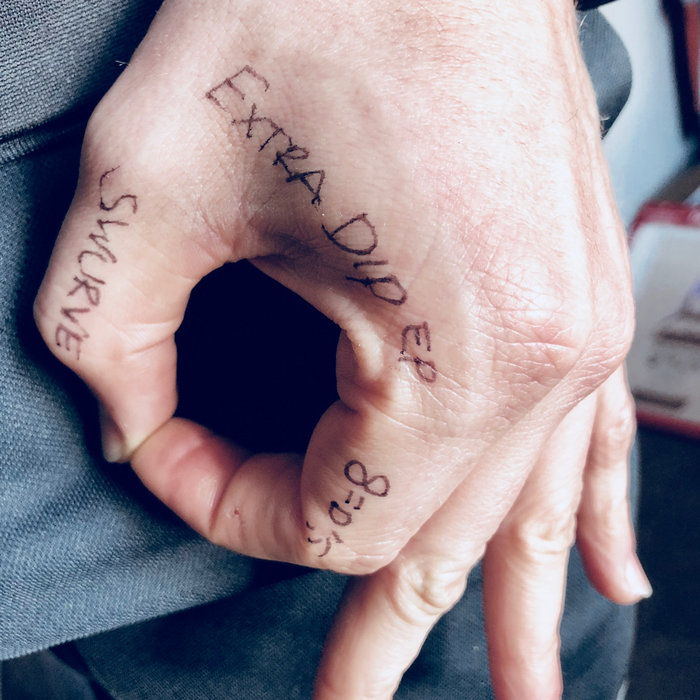 SWURVE
EXTRA DIP EP
8=D